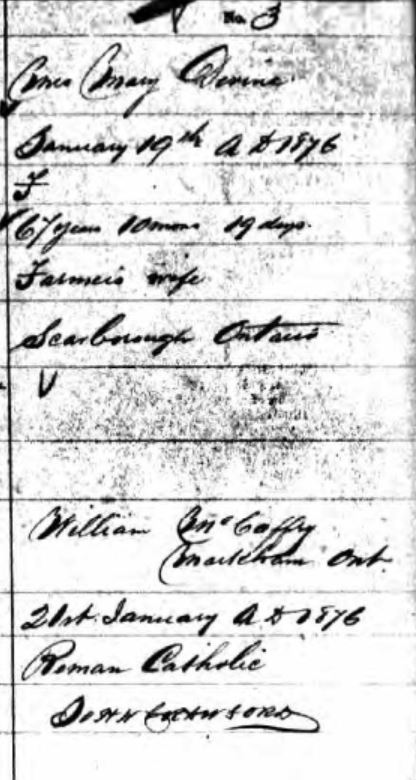 No. 3
Mrs Mary Devine
January 19th A D 1876
F
67 years 10 mons 19 days.
Farmers wife
Scarborough Ontario
William McCaffry
Markham Ont.
21st January A D 1876
Roman Catholic
John Crawford